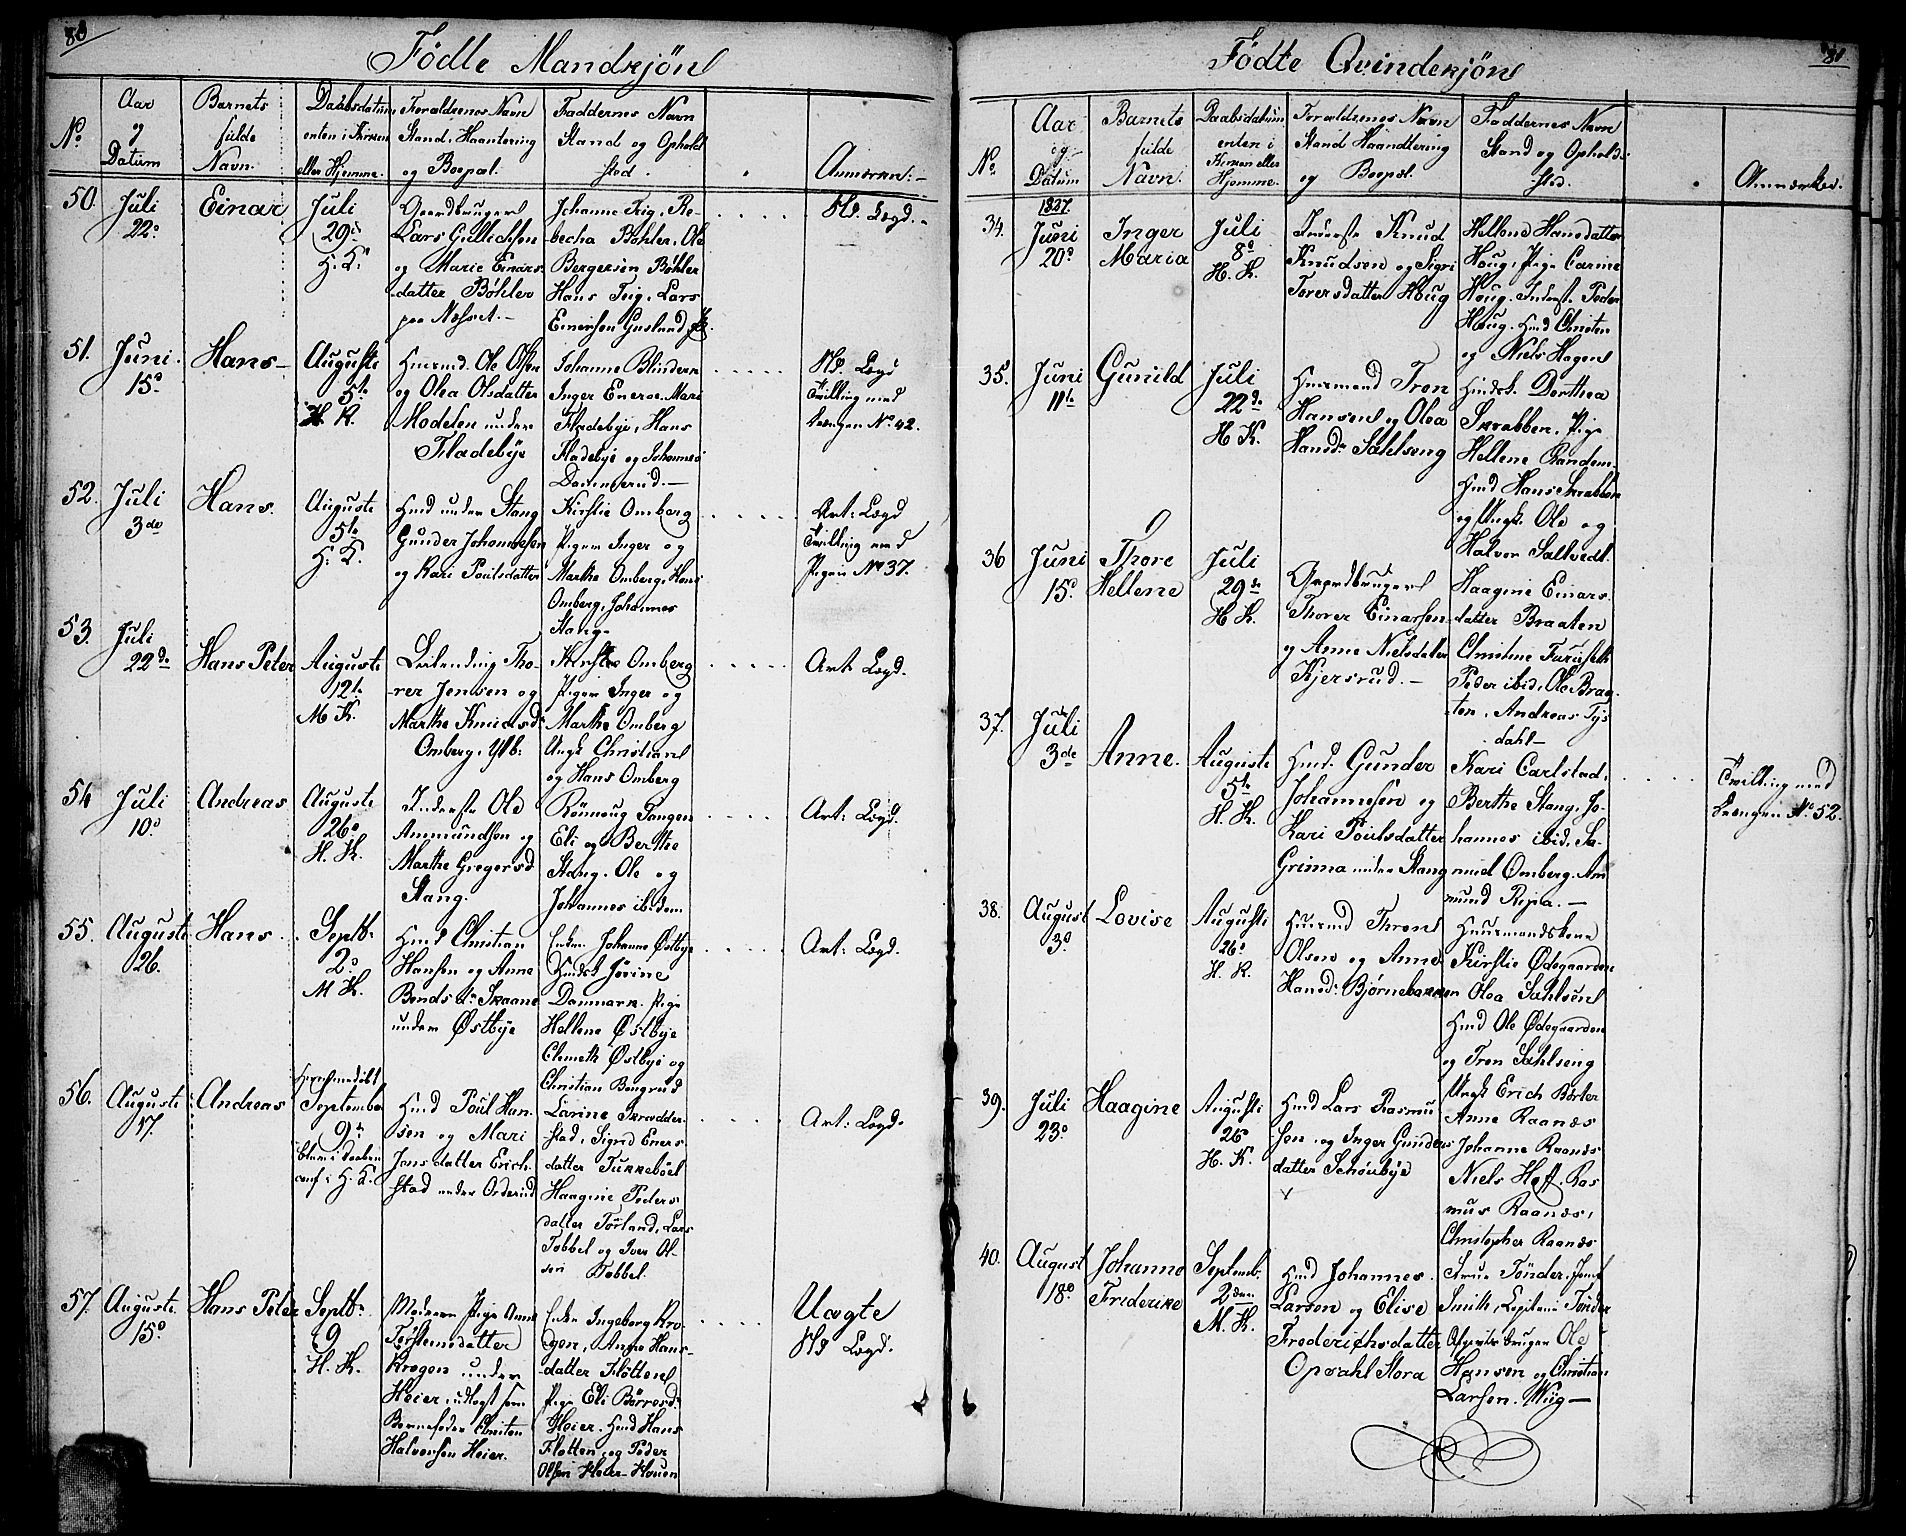 80
Födte Mandkjön
No
Aar
og
Datum
Barnets
fulde
Navn.
Daabsdatum
enten i Kirken
eller Hjemme.
Forældrenes Navn
Stand, Haantering
og Boepæl.
Faddernes Navn
Stand og Ophold
sted.
Anmærkn:
50.
Juli
22.
Einar
Juli
29de
H. K.
Gaardbruger
Lars Gullichsen
og Marie Einars
datter Böhler
paa Næsset.
Johanne Teig, Re-
becha Böhler, Ole
Bergersen Böhler
Hans Teig, Lars
Einersen Gusland
Nd. Lægd.
51.
Juni
15de
Hans
Augusti
5te
H. K.
Huusmd. Ole Olsen
og Olea Olsdatter
Modelen under
Fladebye
Johanne Blindern
Inger Eneroe, Mari
Fladebye, Hans
Fladebye og Johannes
Dammerud.
Nd. Lægd
Tvilling med
Drengen No. 42.
52.
Juli
3de
Hans.
Auguste
5te
H. K.
Hmd under Stang
Gunder Johannesen
og Kari Poulsdatter
Kirstie Omberg
Pigen Inger og
Marthe Omberg, Hans
Omberg, Johannes
Stang.
Art: Lægd
Tvilling med
Pigen No 37.
53.
Juli
22de
Hans Peter
Auguste
12te
M K.
Leilending Tho-
rer Jensen og
Marthe Knudsd:
Omberg, Ytb:
Kirstie Omberg
Pigen Inger og
Marthe Omberg
Ungk Christian
og Hans Omberg
Art: Lægd.
54
Juli
10de
Andreas
Auguste
26de
H. K.
Inderste Ole
Ammundsen og
Marthe Gregersd
Stang.
Rönnoug Tangen
Eli og Berthe
Stang. Ole og
Johannes ibidem
Art: Lægd.
55.
Auguste
26.
Hans
Septb:
2de
M K.
Hmd Christian
Hansen og Anne
Bendsdr Skaane
under Østbye
Enken Johanne Østbye
Hmdsk Jörine
Danmark. Pige
Hellene Østbye
Clemeth Østbye og
Christian Bengrud
Art: Lægd.
56.
Auguste
17.
Andreas
Hjemmedöbt
September
9de
H. K.
Hmd Poul Han-
sen og Mari
Jensdatter Erich-
stad under Orderud
Larine Skrædder-
stad, Sigrid Eners-
datter Tukkeböel
Haagine Peders
datter Torland, Lars
Tobbel og Iver Ol-
sen Tobbel.
Art: Lægd.
57.
Auguste
15de
Hans Peter
Septb:
9
H. K.
Moderen Pige Anne
Torstensdatter
Krogen under
Heier, udlagt som
Barnefader Christen
Halvorsen Heier.
Enken Ingeborg Kro-
gen, Anne Hans-
datter Flötten
Pige Eli Börresd:
Heier. Hmd Hans
Flötten, og Peder
Olsen Heier-Houen
Uægte
Nd Lægd.
81
Födte Qvindekjön
No
Aar
og
Datum
Barnets
fulde
Navn.
Daabsdatum
enten i
Kirken eller
Hjemme.
Forældrenes Navn
Stand Haandtering
og Boepæl.
Faddernes Navn
Stand og Ophold
sted.
Anmærker.
1827.
34.
Juni
20de
Inger
Maria
Juli
8de
H. K.
Inderste Knud
Knudsen og Sigri
Torersdatter Houg
Hellene Hansdatter
Houg, Pige Carine
Houg. Inderste Peder
Houg. Hmd Christen
og Niels Hagen
35.
Juni
11te
Gunild
Juli
22de
H K.
Huusmand Tron
Hansen og Olea
Hansdr Sahlseng
Hmdsk. Dorthea
Skrabben. Pige
Hellene Randem.
Hmd Hans Skrabben
og Ungk. Ole og
Halvor Saltvedt
36
Juni
15de
Thore
Hellene
Juli
29de
H K.
Gaardbruger
Thorer Einarsen
og Anne Nielsdatter
Kjersrud.
Haagine Einars
datter Braaten
Christine Furuseth
Peder ibid, Ole Braa-
ten, Andreas Tys
dahl
37.
Juli
3de
Anne.
Auguste
5te
H. K.
Hmd. Gunder
Johannesen og
Kari Poulsdatter
Grinna under Stang
Kari Carlstad,
Berthe Stang, Jo-
hannes ibid, Sa-
muel Omberg. Am
mund Ripa.
Tvilling med
Drengen No. 52.
38.
August
3de
Lovise
Augusti
26de
H. K.
Huusmd Thron
Olsen og Anne
Hansd: Björnebakken
Huusmandskone
Kirstie Ødegaarden
Olea Sahlseng
Hmd Ole Ødegaarden
og Tron Sahlseng
39.
Juli
23de
Haagine
Augusti
26de
H. K.
Hmd Lars Rasmu
sen, og Inger Gunders
datter Schoubye
Ungk Erich Börter
Anne Raanæs
Johanne Raanæs
Niels Hoff. Ras
mus Raanæs,
Christopher Raanæs
40.
August
18de
Johanne
Friderike
Septemb:
2den
M. K.
Hmd Johannes
Larsen og Elise
Frederichsdatter
Opsahl Stora
Frue Tönder, Jomf
Smith, Capitain Tönder
Ole
Hansen og Christian
Larsen. Wiig